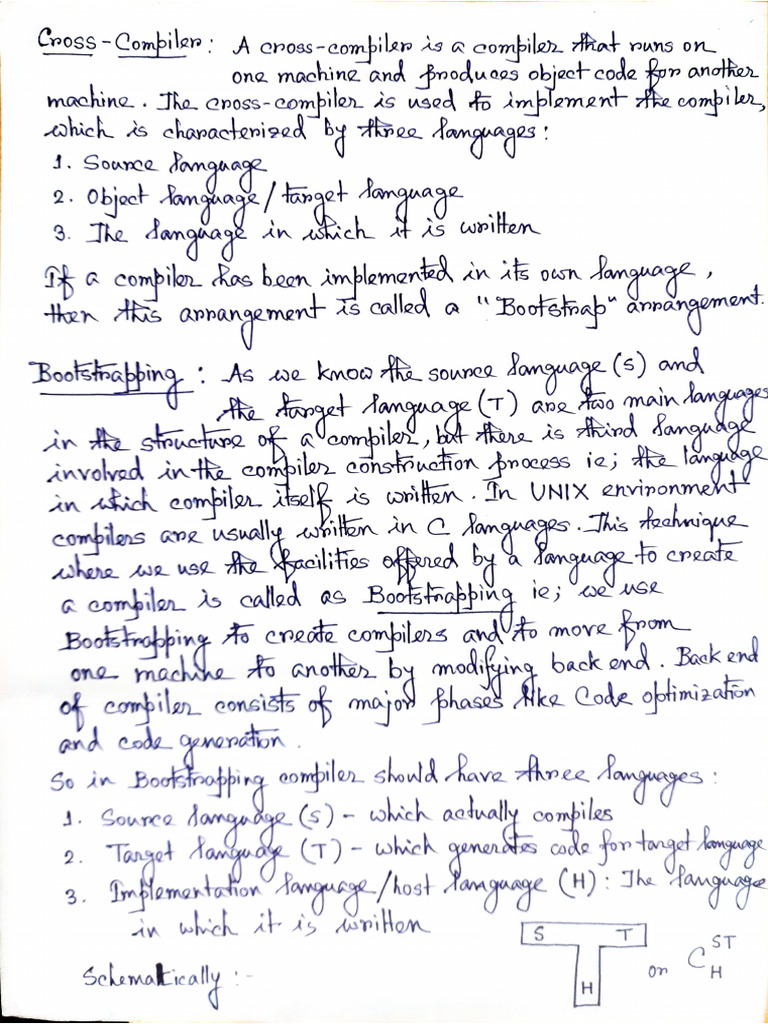 Cross-Compiler: A cross-compiler is a compiler that runs on
one machine and produces object code for another
machine. The cross-compiler is used to implement the compiler,
which is characterized by three languages:
1. Source language
2. Object language/target language
3. The language in which it is written
If a compiler has been implemented in its own language,
then this arrangement is called a "Bootstrap" arrangement.
Bootstrapping: As we know the source language (S) and
the target language (T) are two main languages
in the structure of a compiler, but there is third language
involved in the compiler construction process ie; the language
in which compiler itself is written. In UNIX environment
compilers are usually written in C languages. This technique
where we use the facilities offered by a language to create
a compiler is called as Bootstrapping ie; we use
Bootstrapping to create compilers and to move from
one machine to another by modifying back end. Back end
of compiler consists of major phases like Code optimization
and code generation.
So in Bootstrapping compiler should have three languages:
1. Source language (S) - which actually compiles
2. Target language (T) - which generates code for target language
3. Implementation language/host language (H): The language
in which it is written
Schematically :-
S T
H
or C ST H